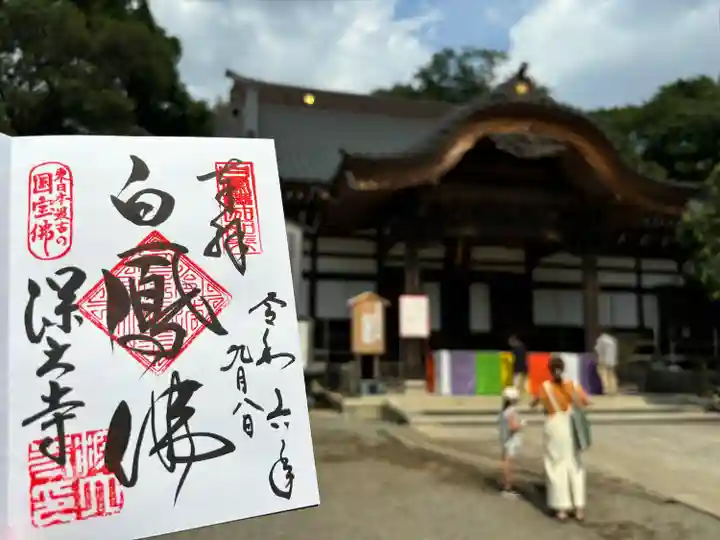 奉拝
令和六年
九月八日
白鳳佛
東日本最古の
国宝佛
深大寺